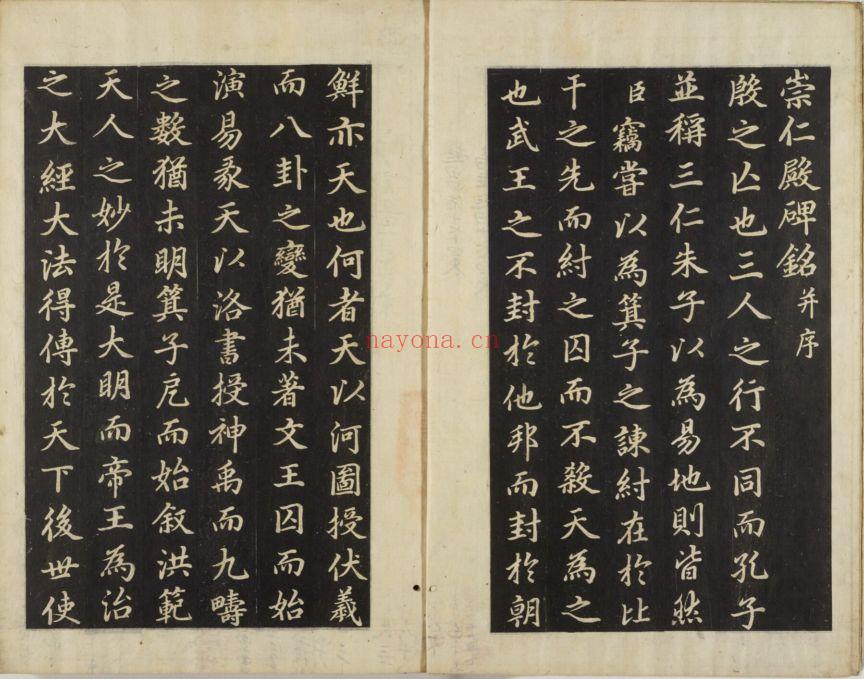 崇仁殿碑銘并序
殷之亡也三人之行不同而孔子
並稱三仁朱子以為易地則皆然
臣竊嘗以為箕子之諫紂在於比
干之先而紂之囚而不殺天為之
也武王之不封於他邦而封於朝
鮮亦天也何者天以河圖授伏羲
而八卦之變猶未著文王囚而始
演易彖天以洛書授神禹而九疇
之數猶未明箕子戹而始叙洪範
天人之妙於是大明而帝王為治
之大經大法得傳於天下後世使
nayona.cn